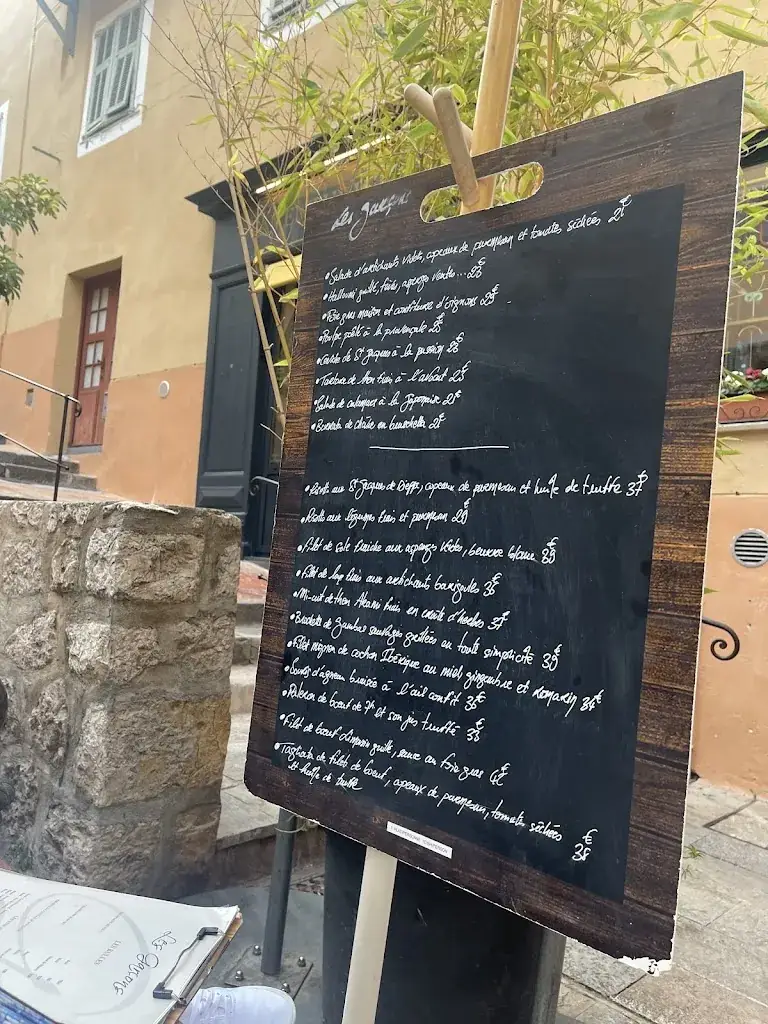 Les garçons
• Salade d'artichauts violets, copeaux de parmesan et tomates séchées 21€
• Halloumi grillé, fèves, asperges vertes... 23€
• Foie gras maison et confiture d'oignons 25€
• Poulpe poêlé à la provençale 25€
• de St Jacques à la passion 25€
• Tartare de thon frais à l'avocat 23€
• Salade de calamars à la Japonaise 21€
• Burrata di en bruschetta 21€
• Risotto aux St Jacques de Dieppe, copeaux de parmesan et huile de truffe 37€
• Risotto aux légumes frais et parmesan 28€
• Filet de sole fraîche aux asperges vertes, beurre blanc 39€
• Filet de loup frais aux artichauts barigoules 36€
• Mi-cuit de thon Akami frais en croûte d'herbes 37€
• Brochette de gambas sauvages grillées en toute simplicité 39€
• Filet mignon de cochon Ibérique au miel, gingembre et romarin 34€
• Souris d'agneau braisée à l'ail confit 35€
• de boeuf de 7h et son jus truffé 35€
• Filet de boeuf Limousin grillé, sauce au foie gras 42€
• Tagliata de filet de boeuf, copeaux de parmesan, tomates séchées 38€
et huile de truffe
Les Garçons